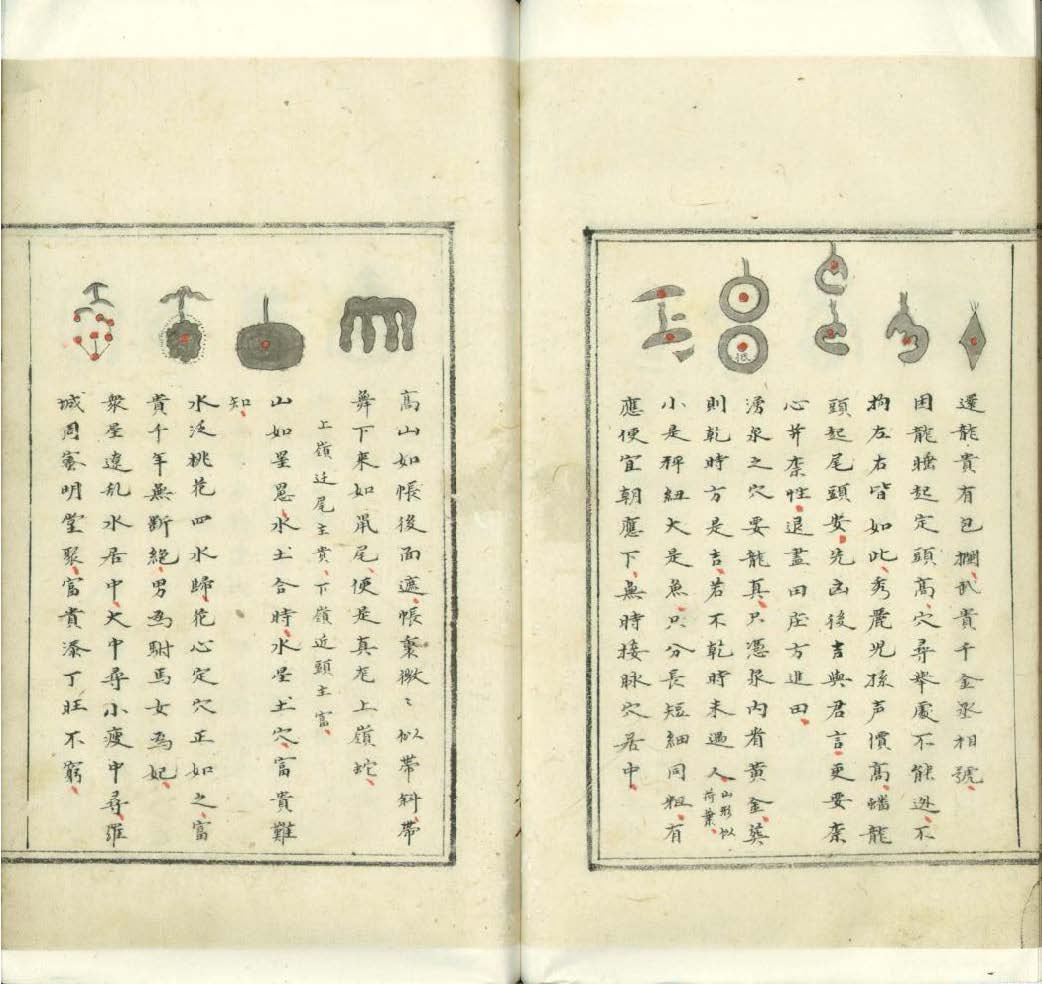 還龍貴有包攔武貴千金丞相號
困龍睡起定頭高穴尋舉處不能逊不
拘左右皆如此秀麗児孫声價髙蟠龍
頭起尾頭安先凶後吉與君言更要
心並性退盡田庄方進田
湧泉之穴要龍真只憑泉内有黄金葵
則乾時方是吉若不乾時未遇人山形似荷葉
小是秤紐大是魚只分長短細同粗有
應便宜朝應下無時接脉穴居中
低
髙山如帳後面遮帳裏微〻似帶斜帶
舞下来如鼠尾便是真龙上嶺蛇
上嶺近尾主貴下嶺近頭主富
山如星水土合時水星土穴富貴難
知
水泛桃花四水歸花心定穴正如之富
貴千年無斷絶男為駙馬女為妃
衆星遼乱水居中大中尋小瘦中尋羅
城周密明堂聚富貴添丁旺不窮